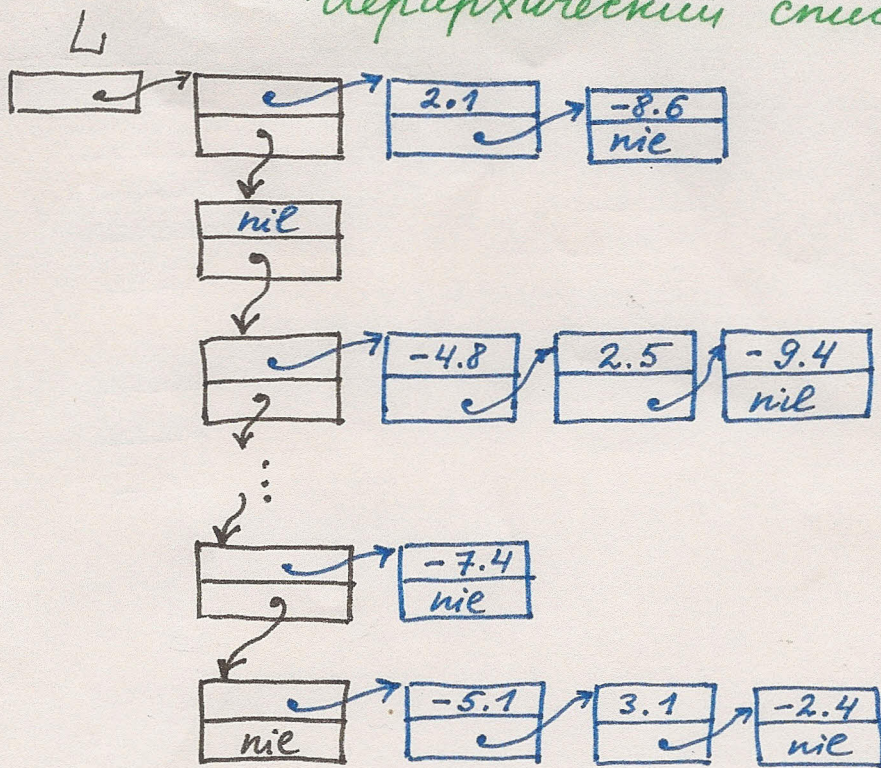 Иерархический
L
2.1 -8.6
nil
nil
-4.8 2.5 -9.4
nil
-7.4
nil
-5.1 3.1 -2.4
nil nil